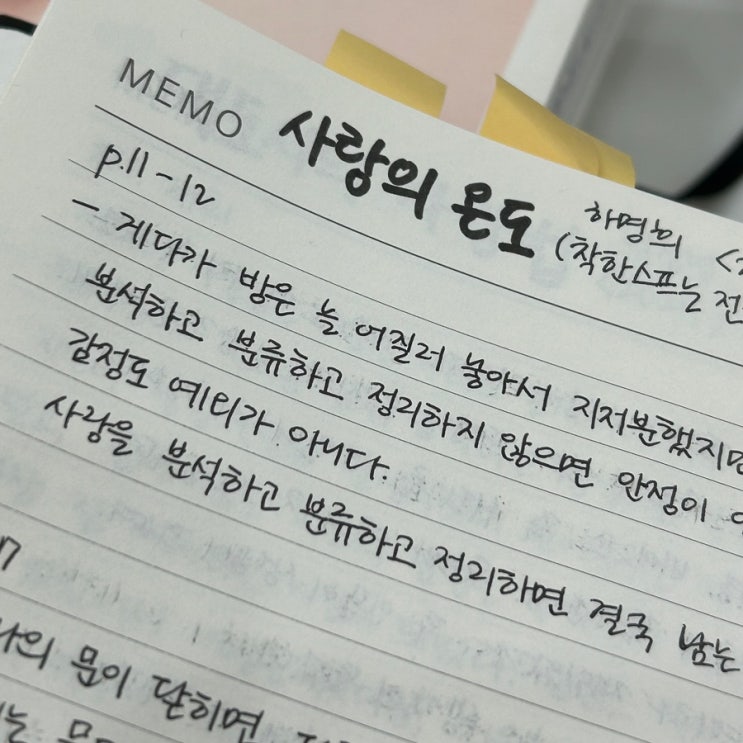 MEMO 사랑의 온도 하명희
(착한스프는 전
p.11-12
- 게다가 방은 늘 어질러 놓아서 지저분했지만
분석하고 분류하고 정리하지 않으면 안정이
감정도 예외가 아니다.
사랑을 분석하고 분류하고 정리하면 결국 남는
의 문이 닫히면